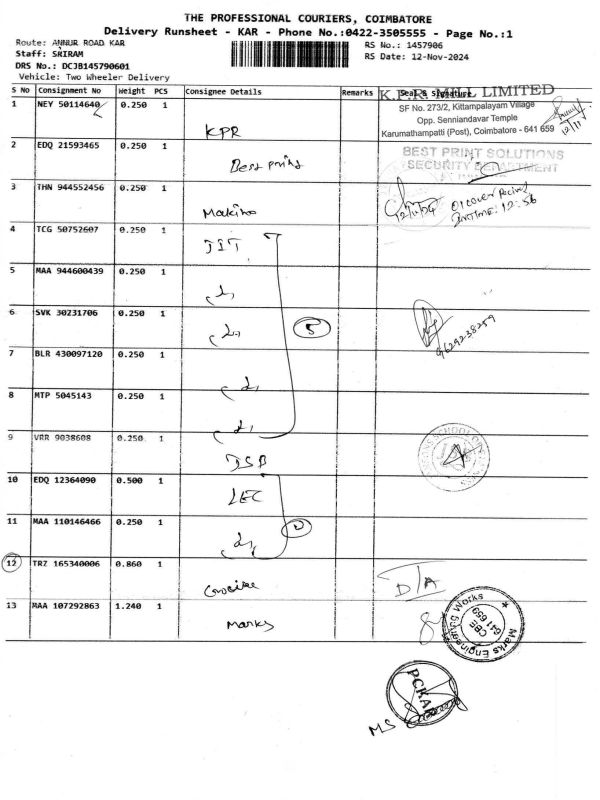 THE PROFESSIONAL COURIERS, COIMBATORE
Delivery Runsheet - KAR - Phone No.:0422-3505555 - Page No.:1
Route: ANNUR ROAD KAR
RS No.: 1457906
Staff: SRIRAM
RS Date: 12-Nov-2024
DRS No.: DCJB145790601
Vehicle: Two Wheeler Delivery
S No Consignment No Weight PCS Consignee Details Remarks Seal & Signature
K.P.R. MILL LIMITED
1 NEY 50114640 0.250 1
SF No. 273/2, Kittampalayam Village
Opp. Senniandavar Temple
KPR Karumathampatti (Post), Coimbatore - 641 659
12/11
2 EDQ 21593465 0.250 1
BEST PRINT SOLUTIONS
SECURITY DEPARTMENT
Best prints
3 THN 944552456 0.250 1
01 cover Recived
InTime: 12:56
12/11/24
Makino
4 TCG 50752607 0.250 1
JIT
5 MAA 944600439 0.250 1
6 SVK 30231706 0.250 1
5
9629238259
7 BLR 430097120 0.250 1
8 MTP 5045143 0.250 1
9 VRR 9038608 0.250 1
JSB
10 EDQ 12364090 0.500 1
LEC
11 MAA 110146466 0.250 1
12 TRZ 165340006 0.860 1
D/A
13 MAA 107292863 1.240 1
Marks
Marks Engineering Works
CBE
641 659
PCKAR
MS